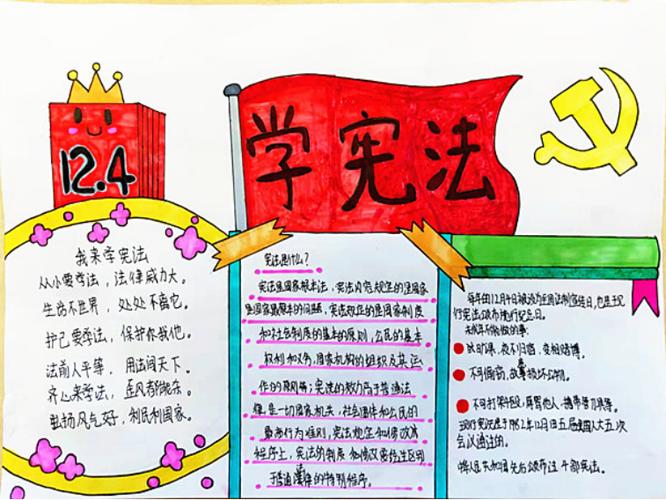 12.4
学宪法
我来学宪法
从小要学法，法律威力大。
生活在世界，处处不离它。
护己要学法，保护你我他。
法前人平等，用法问天下。
齐心来学法，歪风都抛杀。
弘扬风气好，利民利国家。
宪法是什么？
宪法是国家根本法，宪法内容规定的是国家
生国家最根本的问题，宪法规定的是国家制度
和社会制度的基本的原则，公民的基本
权利和义务，国家机构的组织及其运
作的原则等；宪法的效力高于普通法
律，是一切国家机关，社会团体和公民的
最高行为准则，宪法规定和修改
程序上，宪法的制度和修改要经过区别
于普通法律的特别程序。
每年的12月4日被设为全国法制宣传日，也是现
行宪法颁布施行纪念日。
未成年不能做的事：
旷课，夜不归宿，变相赌博。
不可偷窃，故意损坏公物。
不可打架斗殴，辱骂他人，携带管刀具等。
现行宪法是于1982年12月4日五届全国人大五次
会议通过的。